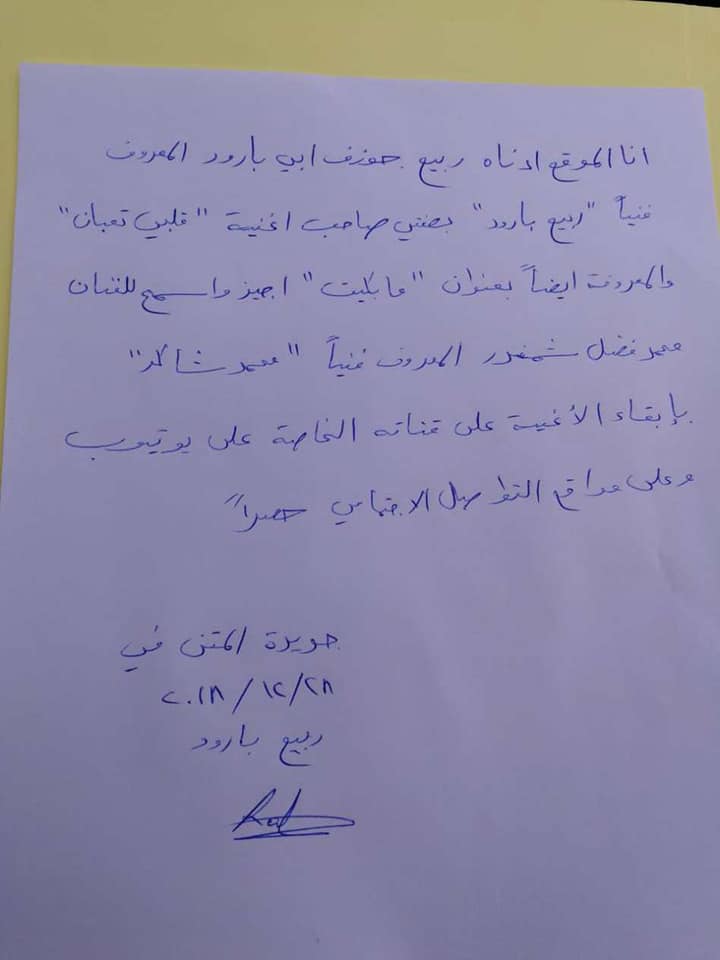 انا الموقع ادناه ربيع جوزف ابي بارود المعروف
فنياً "ربيع بارود" بصفتي صاحب اغنية "قلبي تعبان"
والمعروفة ايضاً بعنوان "ما بكيت" اجيز واسمح للفنان
محمد فضل شمندر المعروف فنياً "محمد شاكر"
بإبقاء الأغنية على قناته الخاصة على يوتيوب
وعلى مواقع التواصل الاجتماعي حصراً
جديدة المتن في
٢٠١٨/١٢/٢٨
ربيع بارود